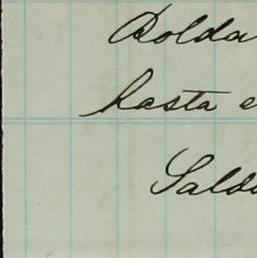 Bolda
hasta e
Sald